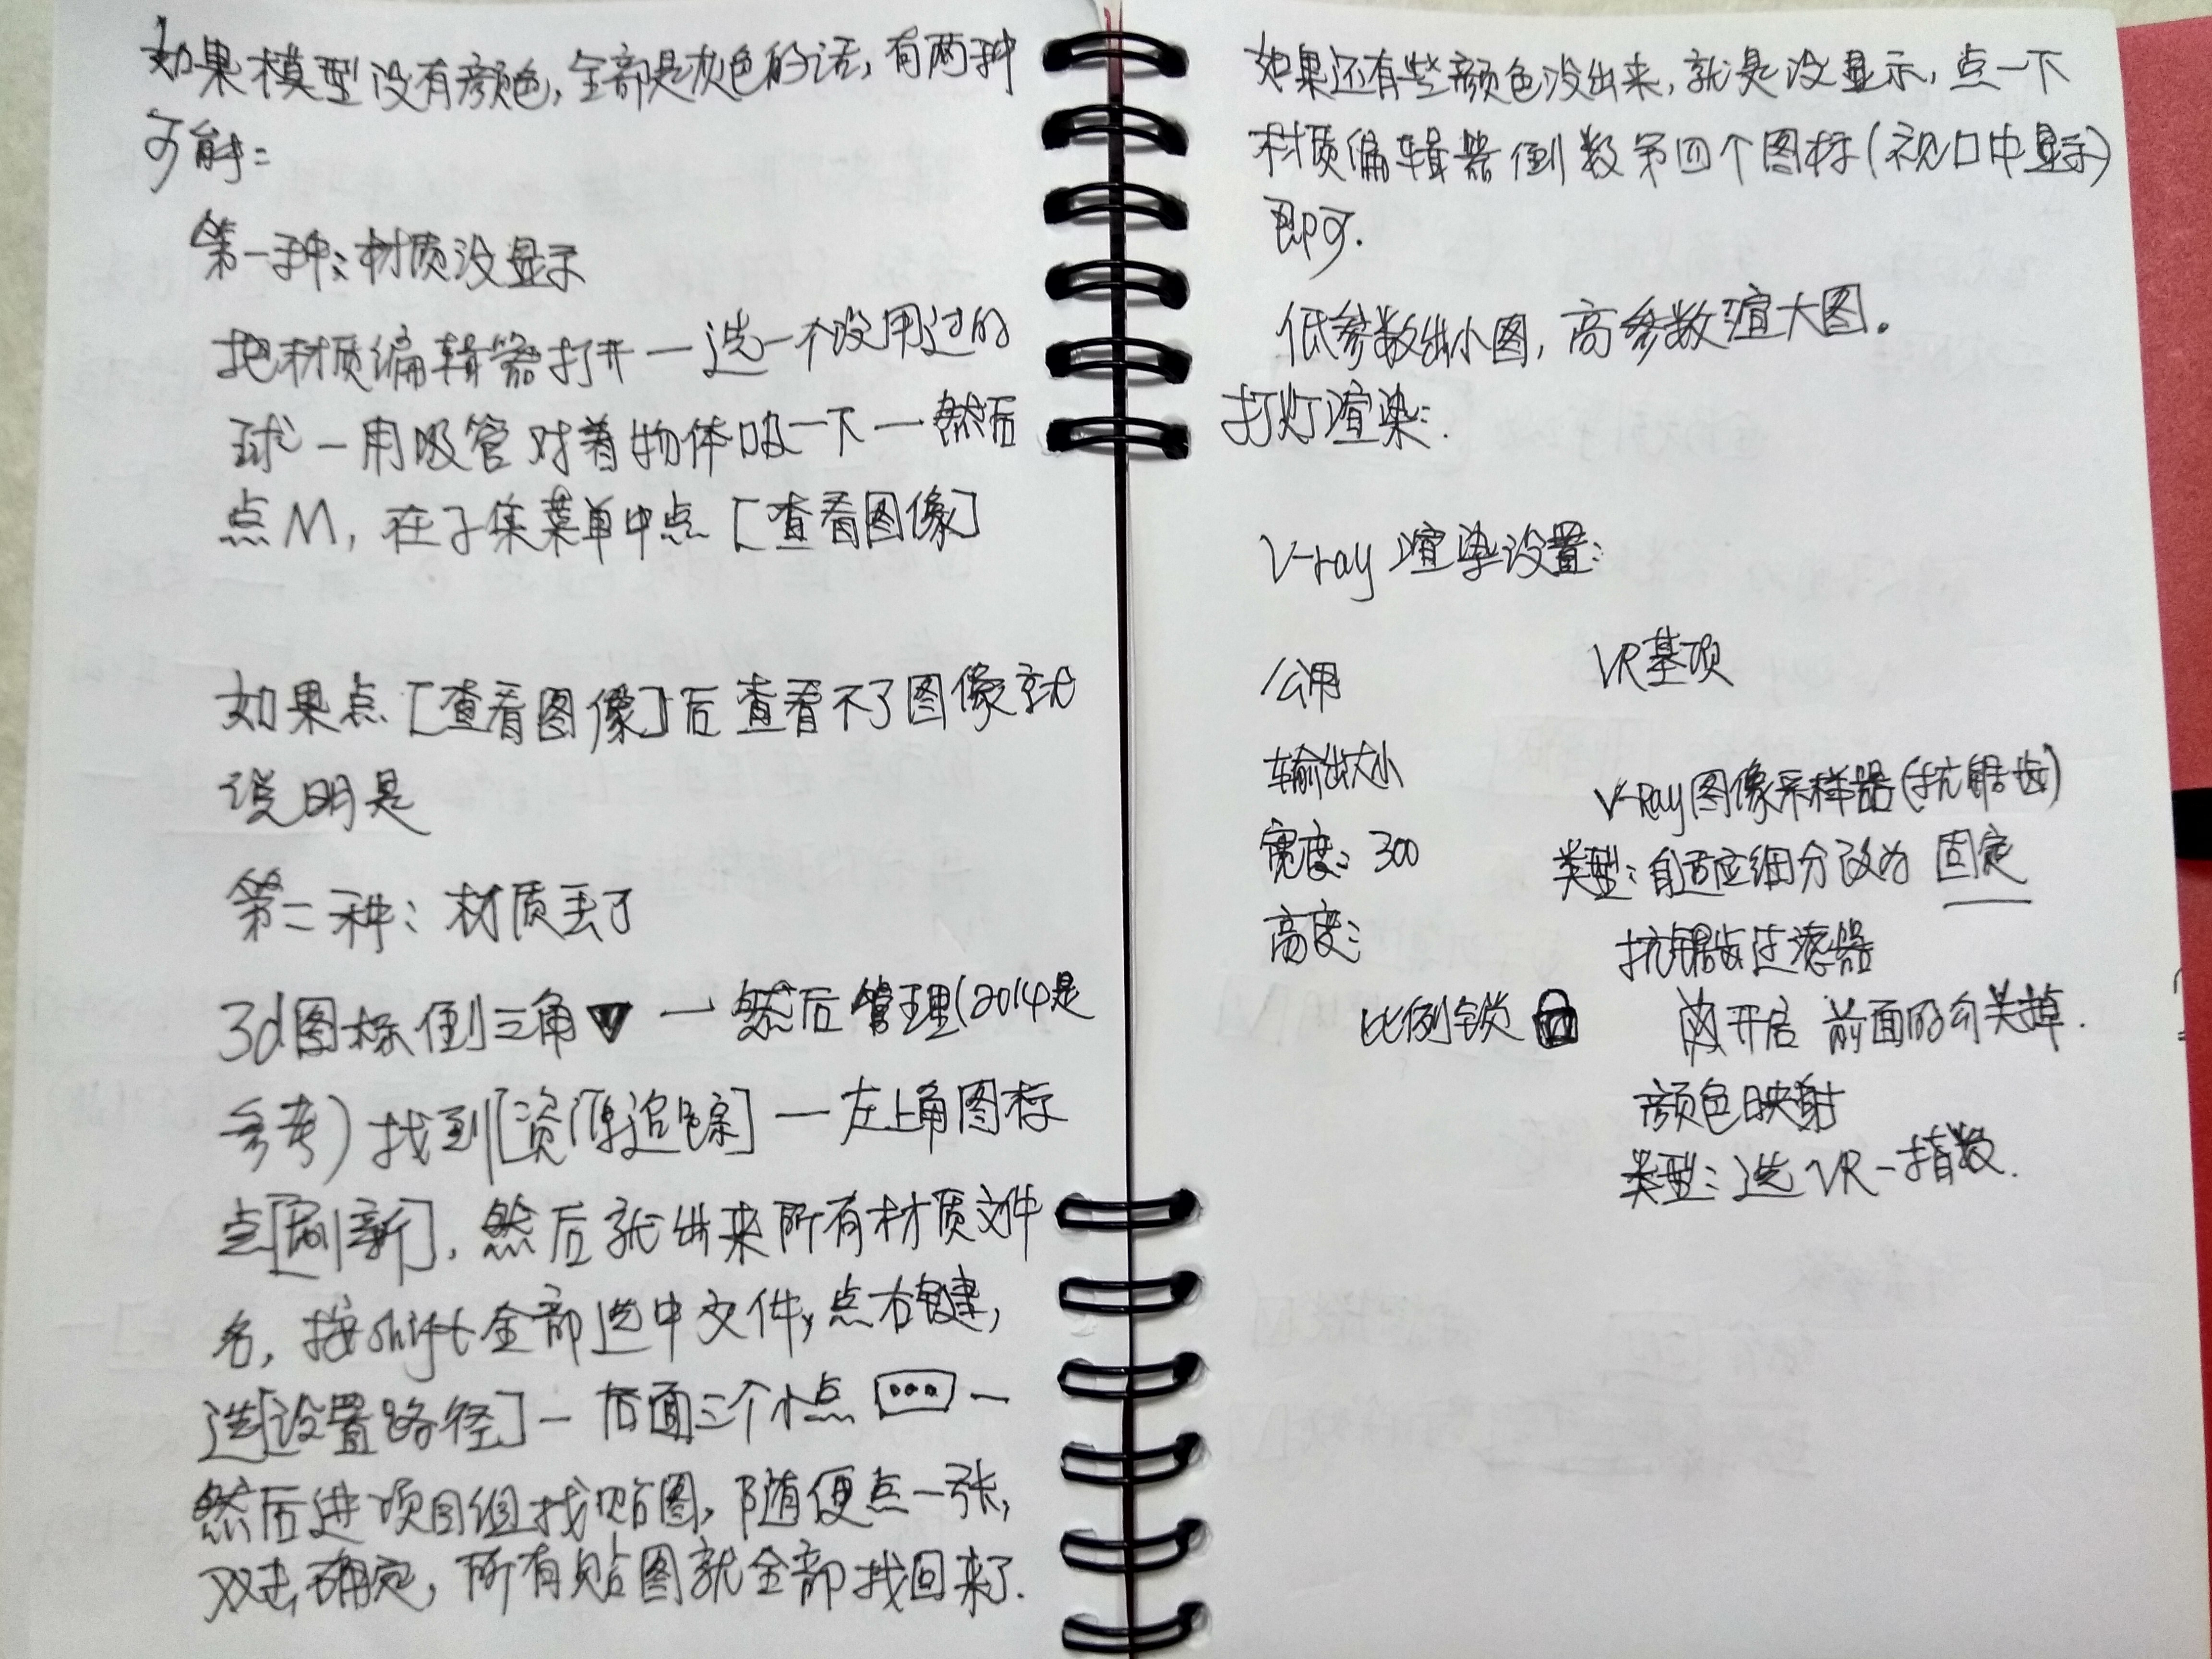 如果模型没有颜色,全部是灰色的话,有两种
可能:
第一种:材质没显示
把材质编辑器打开一选一个没用过的
球一用吸管对着物体吸一下一然后
点M,在子集菜单中点[查看图像]
如果点[查看图像]后查看不了图像就
说明是
第二种:材质丢了
3d图标倒三角▼一然后管理(2014是
参考)找到[资源追踪]一左上角图标
点[刷新],然后就出来所有材质文件
名,按shift全部选中文件,点右键,
选[设置路径]一后面三个小点[...]一
然后进项目组找贴图,随便点一张,
双击确定,所有贴图就全部找回来了.
如果还有些颜色没出来,就是没显示,点一下
材质编辑器倒数第四个图标(视口中显示)
即可.
低参数出小图,高参数渲大图。
打灯渲染:
V-ray渲染设置:
公用
输出大小
宽度:300
高度:
比例锁
VR基项
V-Ray图像采样器(抗锯齿)
类型:自适应细分改为 固定
抗锯齿过滤器
开启 前面的勾关掉.
颜色映射
类型:选VR-指数.